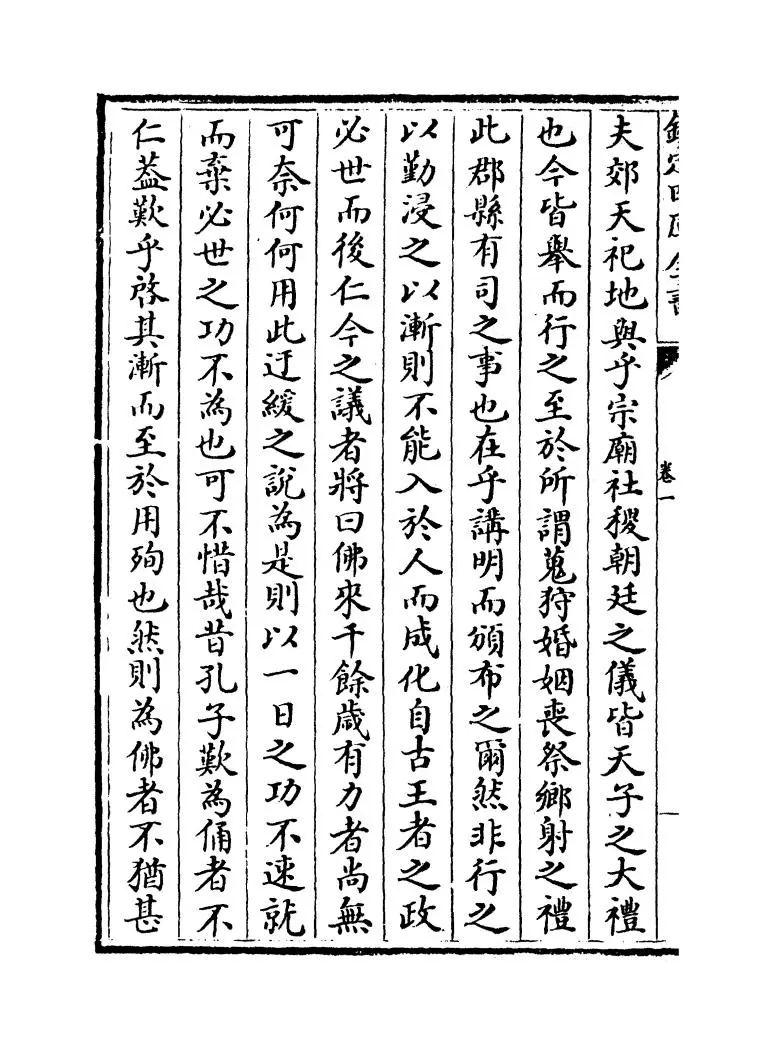 夫郊天祀地與乎宗廟社稷朝廷之儀皆天子之大禮
也今皆舉而行之至於所謂蒐狩婚姻喪祭鄉射之禮
此郡縣有司之事也在乎講明而頒布之爾然非行之
以勤浸之以漸則不能入於人而成化自古王者之政
必世而後仁今之議者將曰佛來千餘歲有力者尚無
可奈何何用此迂緩之說為是則以一日之功不速就
而棄必世之功不為也可不惜哉昔孔子歎為俑者不
仁葢歎乎啓其漸而至於用殉也然則為佛者不猶甚
卷一